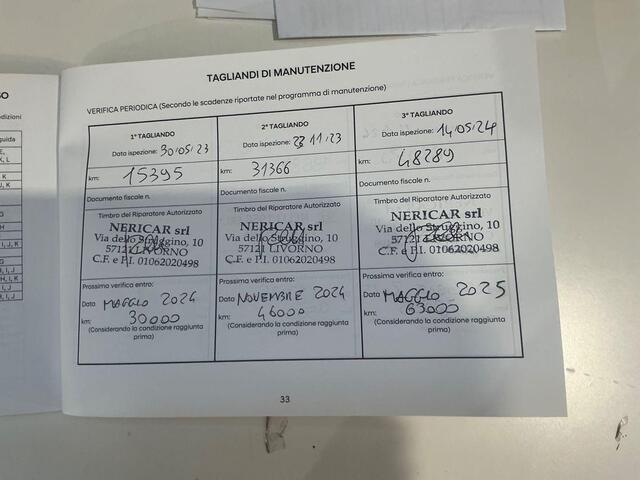 TAGLIANDI DI MANUTENZIONE
VERIFICA PERIODICA (Secondo le scadenze riportate nel programma di manutenzione)
1° TAGLIANDO
Data ispezione: 30/05/23
km: 15395
Documento fiscale n.
Timbro del Riparatore Autorizzato
NERICAR srl
Via dello Struggino, 10
57121 LIVORNO
C.F. e P.I. 01062020498
Prossima verifica entro:
Data MAGGIO 2024
km: 30000
(Considerando la condizione raggiunta
prima)
2° TAGLIANDO
Data ispezione: 23 11/23
km: 31366
Documento fiscale n.
Timbro del Riparatore Autorizzato
NERICAR srl
Via dello Struggino, 10
57121 LIVORNO
C.F. e P.I. 01062020498
Prossima verifica entro:
Data NOVEMBRE 2024
km: 46000
(Considerando la condizione raggiunta
prima)
3° TAGLIANDO
Data ispezione: 14/05/24
km: 48289
Documento fiscale n.
Timbro del Riparatore Autorizzato
NERICAR srl
Via dello Struggino, 10
57121 LIVORNO
C.F. e P.I. 01062020498
Prossima verifica entro:
Data MAGGIO 2025
km: 63000
(Considerando la condizione raggiunta
prima)
33